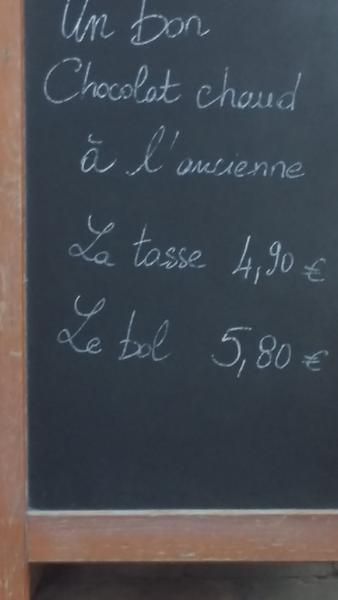 Un bon
Chocolat chaud
à l'ancienne
La tasse 4,90 €
Le bol 5,80 €